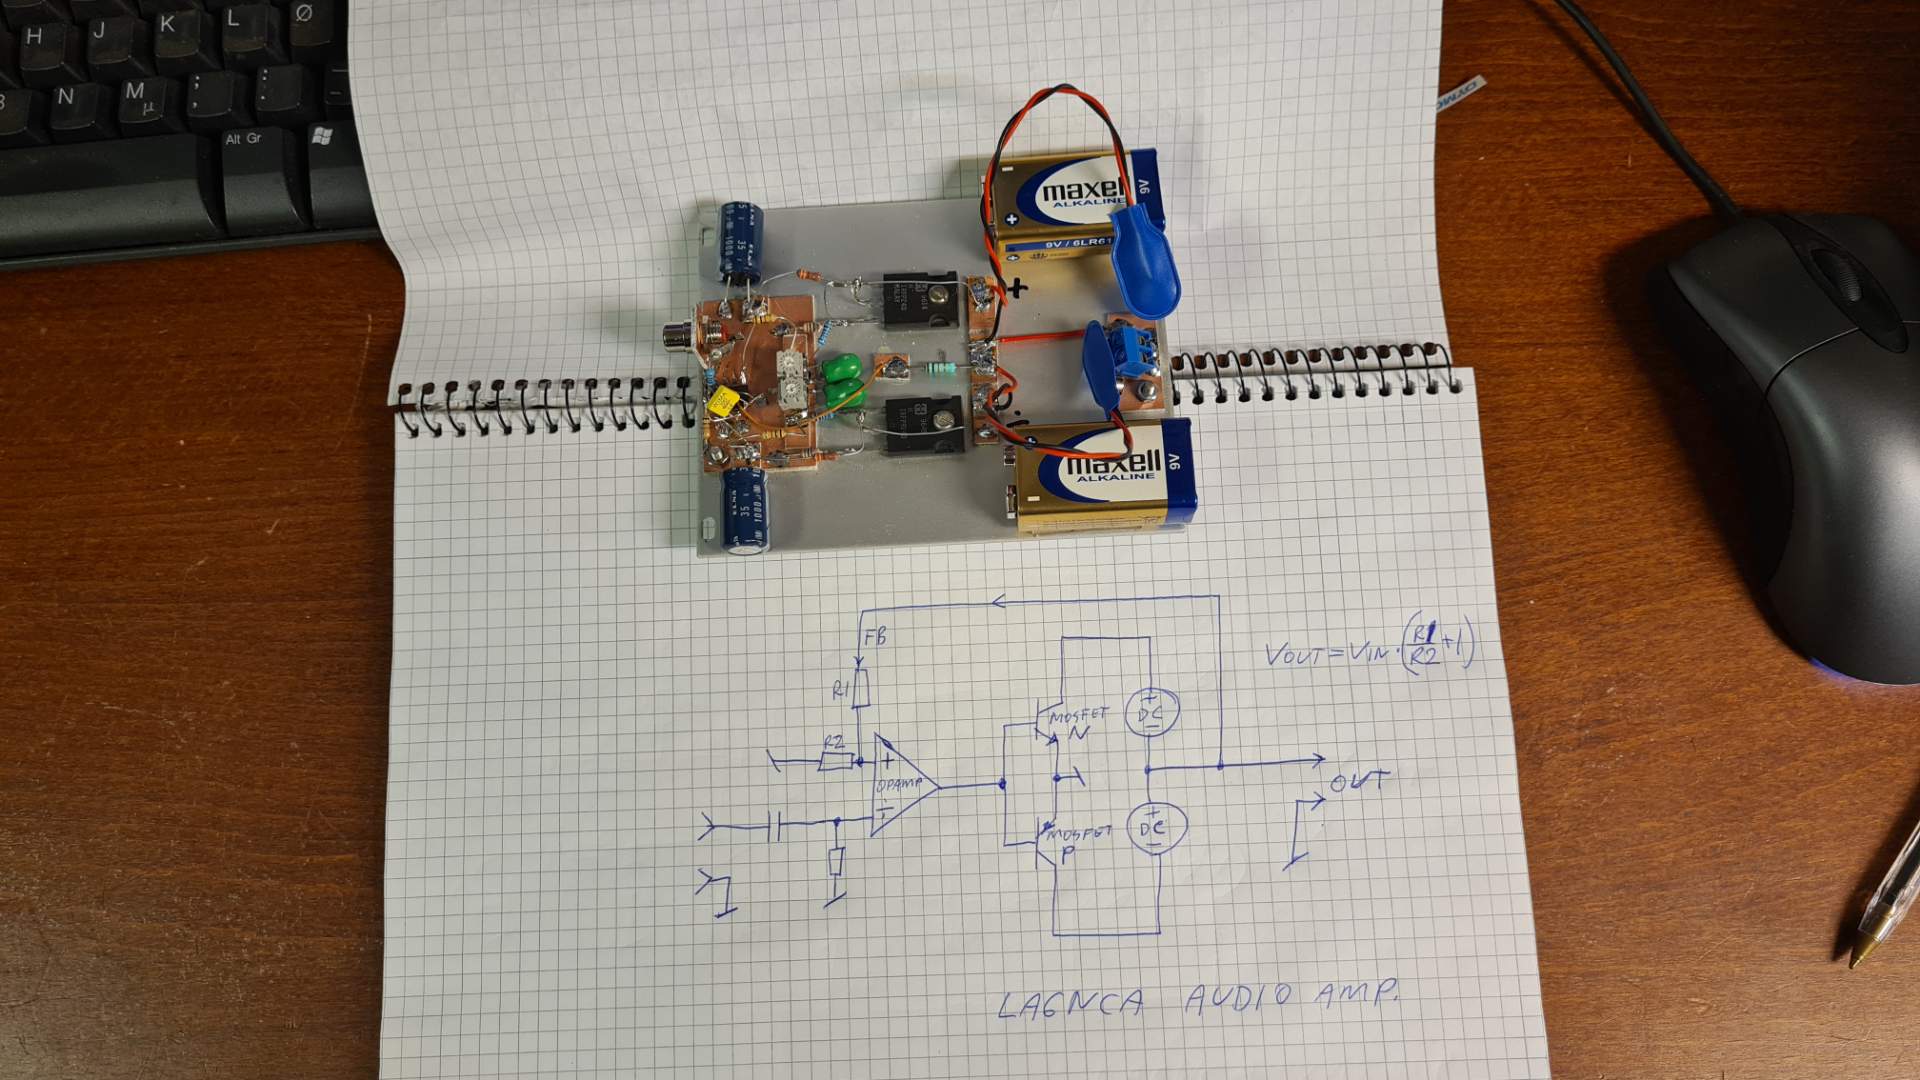 H J K L Ø
N M µ ; , : .
Alt Gr
DYMO
maxell
ALKALINE
9V
9V / 6LR61
+
maxell
ALKALINE
9V
35
1000
ELNA
35
1000
FB
R1
R2
+
OPAMP
-
MOSFET
N
MOSFET
P
+
DC
-
+
DC
-
OUT
VOUT=VIN·(R1/R2+1)
LA6NCA AUDIO AMP.